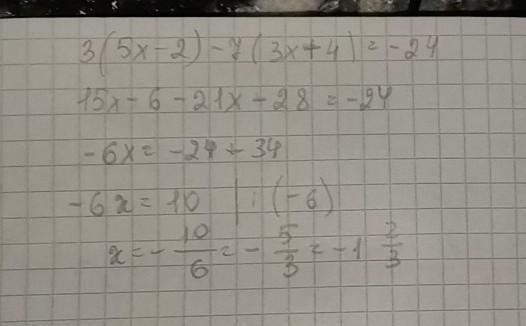 3(5x-2)-7(3x+4)=-24
15x-6-21x-28=-24
-6x=-24+34
-6x=10 |:(-6)
x=-10/6=-5/3=-1 2/3